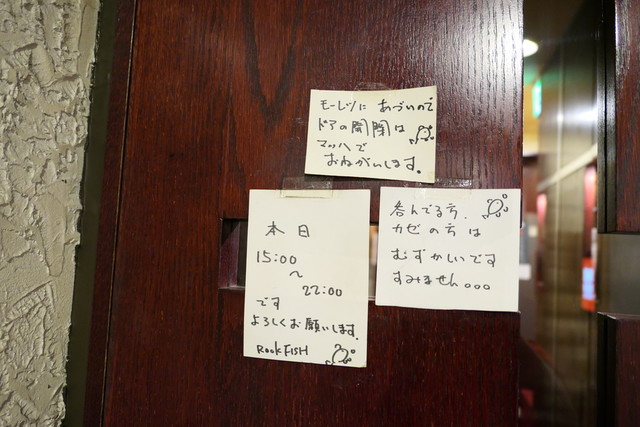 モーレツに あづいので
ドアの開閉は
マッハで
おねがいします。
本日
15:00
〜
22:00
です
よろしくお願いします。
ROCK FISH
呑んでる方、
カゼの方は
むずかしいです
すみません。。。